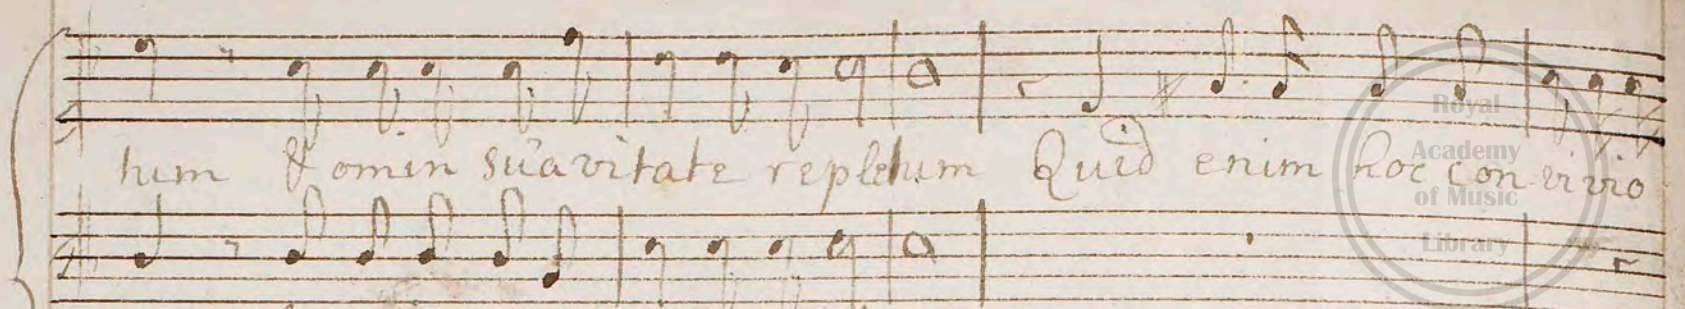 tum & omin suavitate repletum Quid enim hoc con vivio
Royal
Academy
of Music
Library